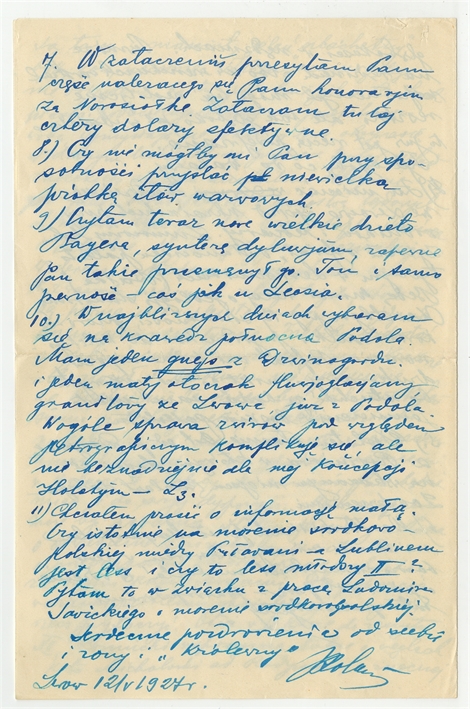 7. W załączeniu przesyłam Panu
część należącego się Panu honorarjum
za Nowosiółkę. Załączam tutaj
cztery dolary efektywne.
8.) Czy nie mógłby mi Pan przy spo-
sobności przysłać niewielką
próbkę iłów warwowych.
9) Czytam teraz nowe wielkie dzieło
Bayera, syntezę dyluwjum, zapewne
Pan także przejrzał go. Ton i sama
pewność – coś jak u Leosia.
10.) W najbliższych dniach wybieram
się na krawędź północną Podola.
Mam jeden gnejs z Dzwinogrodu
i jeden mały otoczak fluwjoglacjalny
granitowy ze Lwowa już z Podola.
Wogóle sprawa żwirów pod względem
petrograficznym komplikuje się, ale
nie beznadziejnie dla mej koncepcji
Holstýn – L3.
11) Chciałem prosić o informację małą.
Czy istotnie na morenie środkowo-
polskiej między Puławami a Lublinem
jest less i czy to less młodszy II?
Pytam to w związku z pracą Ludomira
Sawickiego i morenie środkowopolskiej.
Serdeczne pozdrowienia od siebie
i żony i „Królewny”
Lwów 12/V 1927 r.